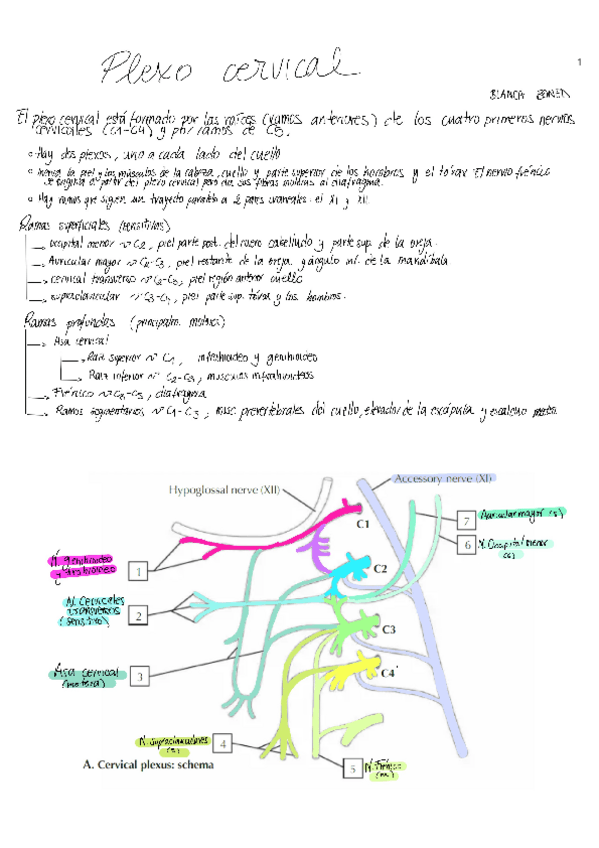 1
Plexo cervical
BLANCA
El plexo cervical está formado por las raíces (ramos anteriores) de los cuatro primeros nervios
cervicales (C1-C4) y por ramos de C5.
Hay dos plexos, uno a cada lado del cuello
Inerva la piel y los músculos de la cabeza, cuello y parte superior de los hombros y el tórax. El nervio frénico
se origina a partir del plexo cervical pero da sus fibras motoras al diafragma.
Hay ramos que siguen un trayecto paralelo a 2 pares craneales: el XI y XII
Ramas superficiales (sensitivas)
→ occipital menor ~ C2, piel parte post. del cuero cabelludo y parte sup. de la oreja.
→ Auricular mayor ~ C2-C3, piel restante de la oreja y ángulo inf. de la mandíbula.
→ cervical transverso ~ C2-C3, piel región anterior cuello
→ supraclavicular ~ C3-C4, piel parte sup. tórax y los hombros.
Ramas profundas (principalm. motoras)
→ Asa cervical
→ Raíz superior ~ C1, infrahioideo y genihioideo
→ Raíz inferior ~ C2-C3, músculos infrahioideos
→ Frénico ~ C3-C5, diafragma
→ Ramos segmentarios ~ C1-C3, musc prevertebrales del cuello, elevador de la escápula y escaleno
Hypoglossal nerve (XII)
Accessory nerve (XI)
C1
7 Auricular mayor (s)
6 N. Occipital menor
(s)
N. genihioideo
y tirohioideo
1
C2
N. Cervicales
transversos
(sensitivo)
2
C3
Asa cervical
(motora)
3
C4
N. supraclaviculares
(s)
4
5 N. Frénico
(m)
A. Cervical plexus: schema